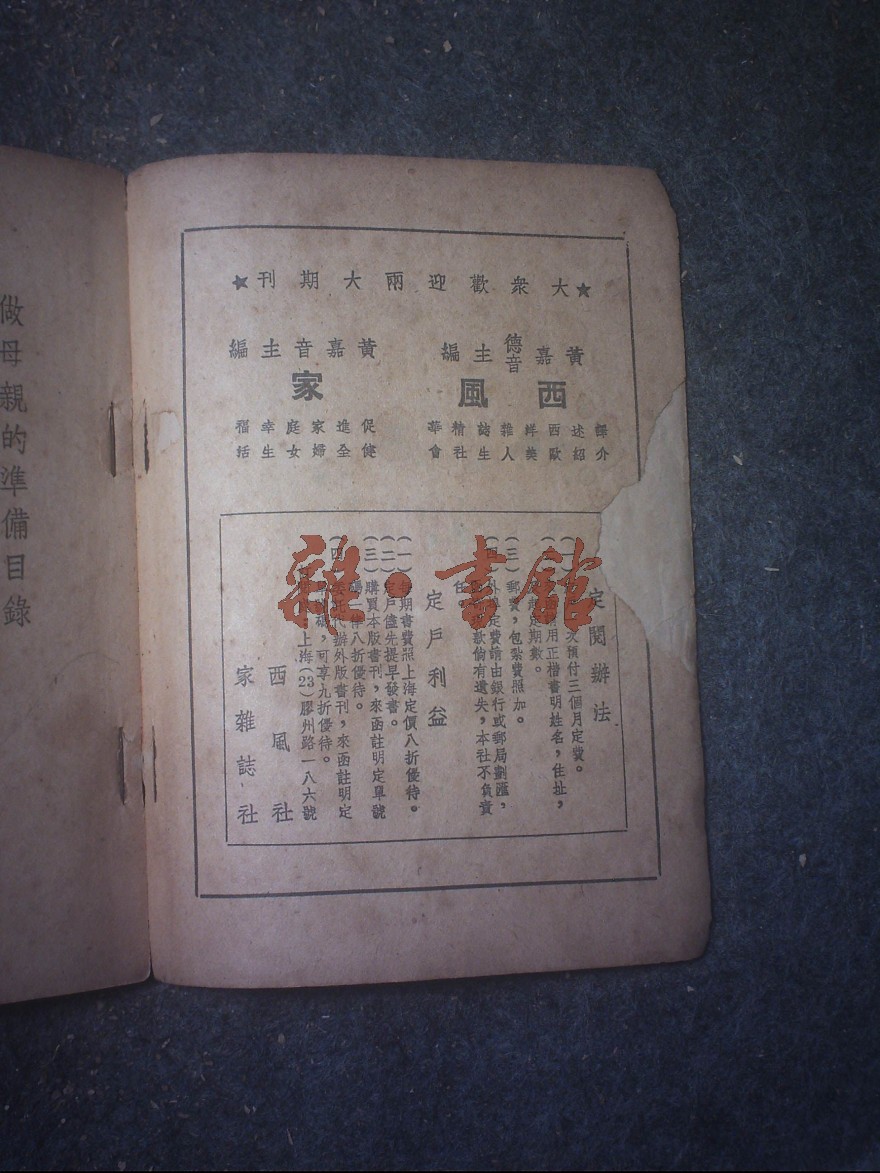 ★大衆歡迎兩大期刊★
黃嘉德音主編
西風
譯述西洋雜誌精華
介紹歐美人生社會
黃嘉音主編
家
促進家庭幸福
健全婦女生活
定閱辦法
(一)次預付三個月定費。
(二)用正楷書明姓名，住址，
定期數。
(三)郵費，包紮費照加。
(四)外埠定費請由銀行或郵局劃匯，
款倘有遺失，本社不負責
任。
定戶利益
(一)每期書費照上海定價八折優待。
(二)定戶儘先提早發書。
(三)購買本版書刊，來函註明定單號
碼一律八折優待。
(四)委託代辦外版書刊，來函註明定
單號碼，可享九折優待。
上海(23)膠州路一八六號
西風社
家雜誌社
做母親的準備目錄
雜·書館